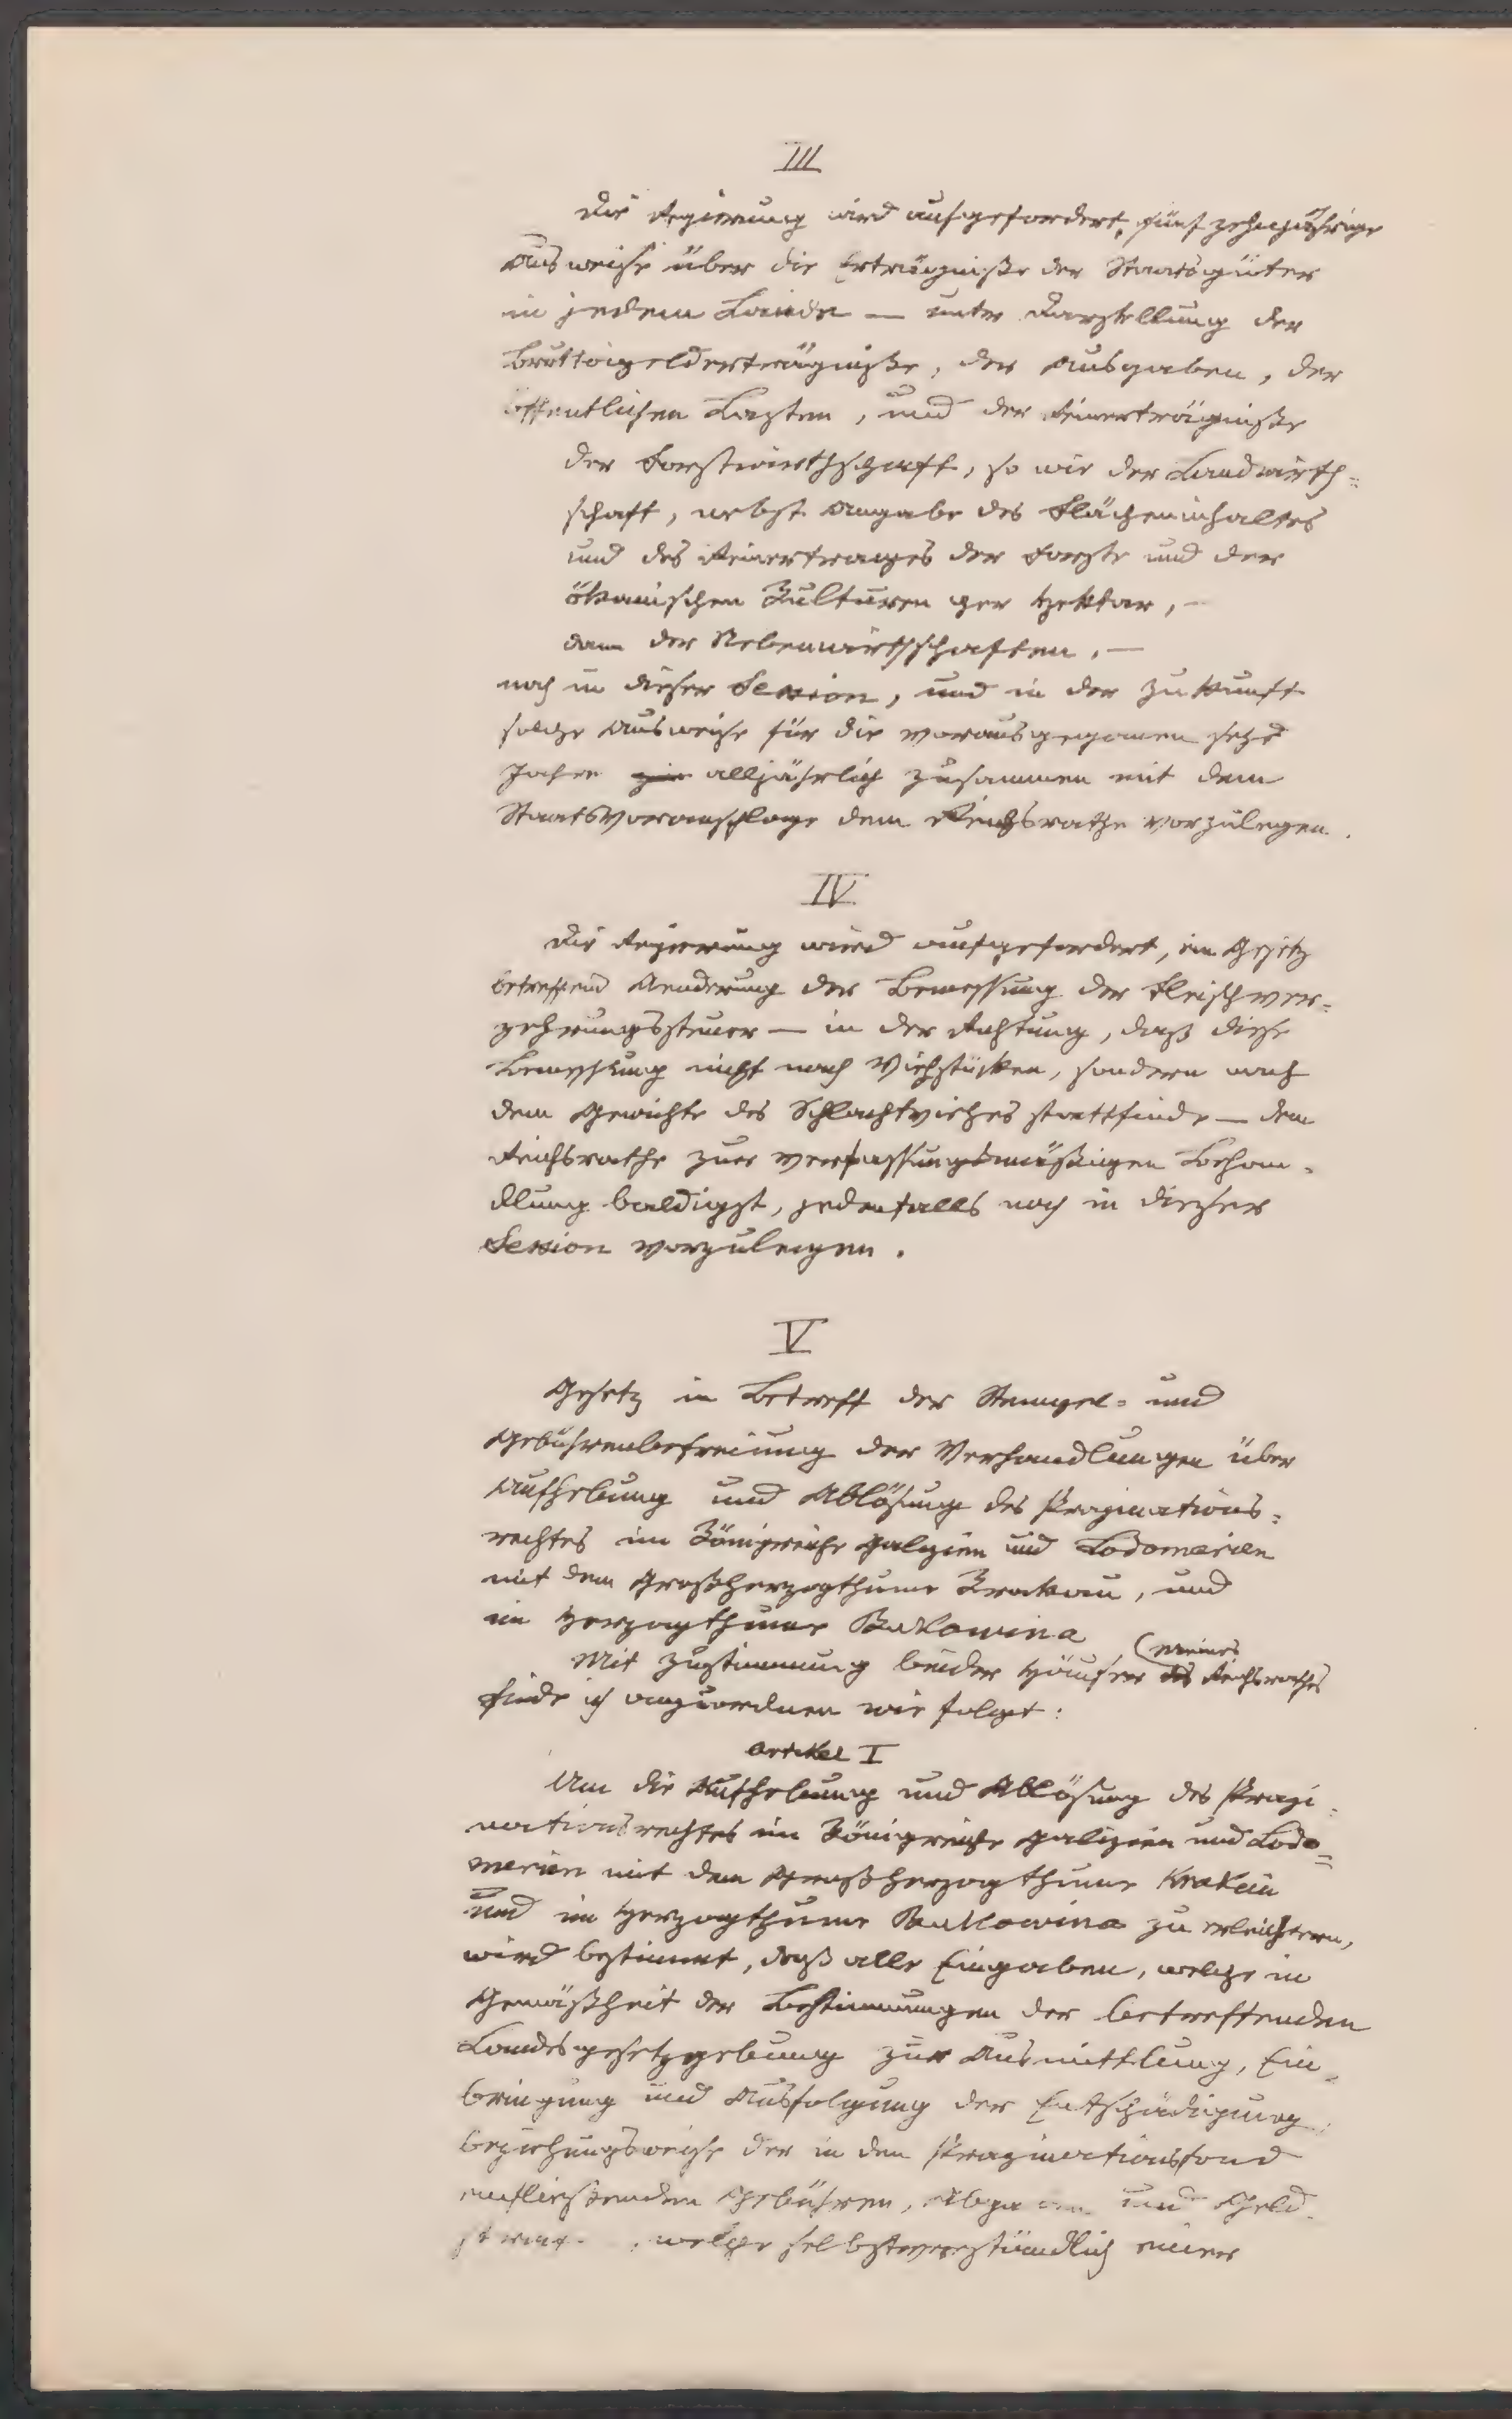 III
Die Regierung wird aufgefordert, fünfzehnjährige
Ausweise über die Erträgnisse der Staatsgüter
in jedem Lande — unter Darstellung der
Bruttogelderträgnisse, der Ausgaben, der
öffentlichen Lasten, und der Reinerträgnisse
der Forstwirthschaft, so wie der Landwirth=
schaft, nebst Angabe des Flächeninhaltes
und des Reinertrages der Forste und der
ökonomischen Kulturen per Hektar, —
dann der Nebenwirthschaften, —
noch in dieser Session, und in der Zukunft
solche Ausweise für die vorausgegangenen sechs
Jahre alljährlich zusammen mit dem
Staatsvoranschlage dem Reichsrathe vorzulegen.
IV
Die Regierung wird aufgefordert, ein Gesetz
betreffend Aenderung der Bemessung der Fleischver=
zehrungssteuer — in der Richtung, daß diese
Bemessung nicht nach Viehstücken, sondern nach
dem Gewichte des Schlachtviehes stattfinde — dem
Reichsrathe zur verfassungsmäßigen Behan=
dlung baldigst, jedenfalls noch in dieser
Session vorzulegen.
V
Gesetz in Betreff der Stempel= und
Gebührenbefreiung der Verhandlungen über
Aufhebung und Ablösung des Propinations=
rechtes im Königreiche Galizien und Lodomerien
mit dem Großherzogthume Krakau, und
im Herzogthume Bukowina
Mit Zustimmung beider Häuser des meines Reichsrathes
finde ich anzuordnen wie folgt:
Artikel I
Um die Aufhebung und Ablösung des Propi=
nationsrechtes im Königreiche Galizien und Lodo=
merien mit dem Großherzogthume Krakau
und im Herzogthume Bukowina zu erleichtern,
wird bestimmt, daß alle Eingaben, welche in
Gemäßheit der Bestimmungen der betreffenden
Landesgesetzgebung zur Ausmittlung, Ein=
bringung und Ausfolgung der Entschädigung,
beziehungsweise der in den Propinationsfond
einfließenden Gebühren, Abgaben und Geld=
, welche selbstverständlich einer